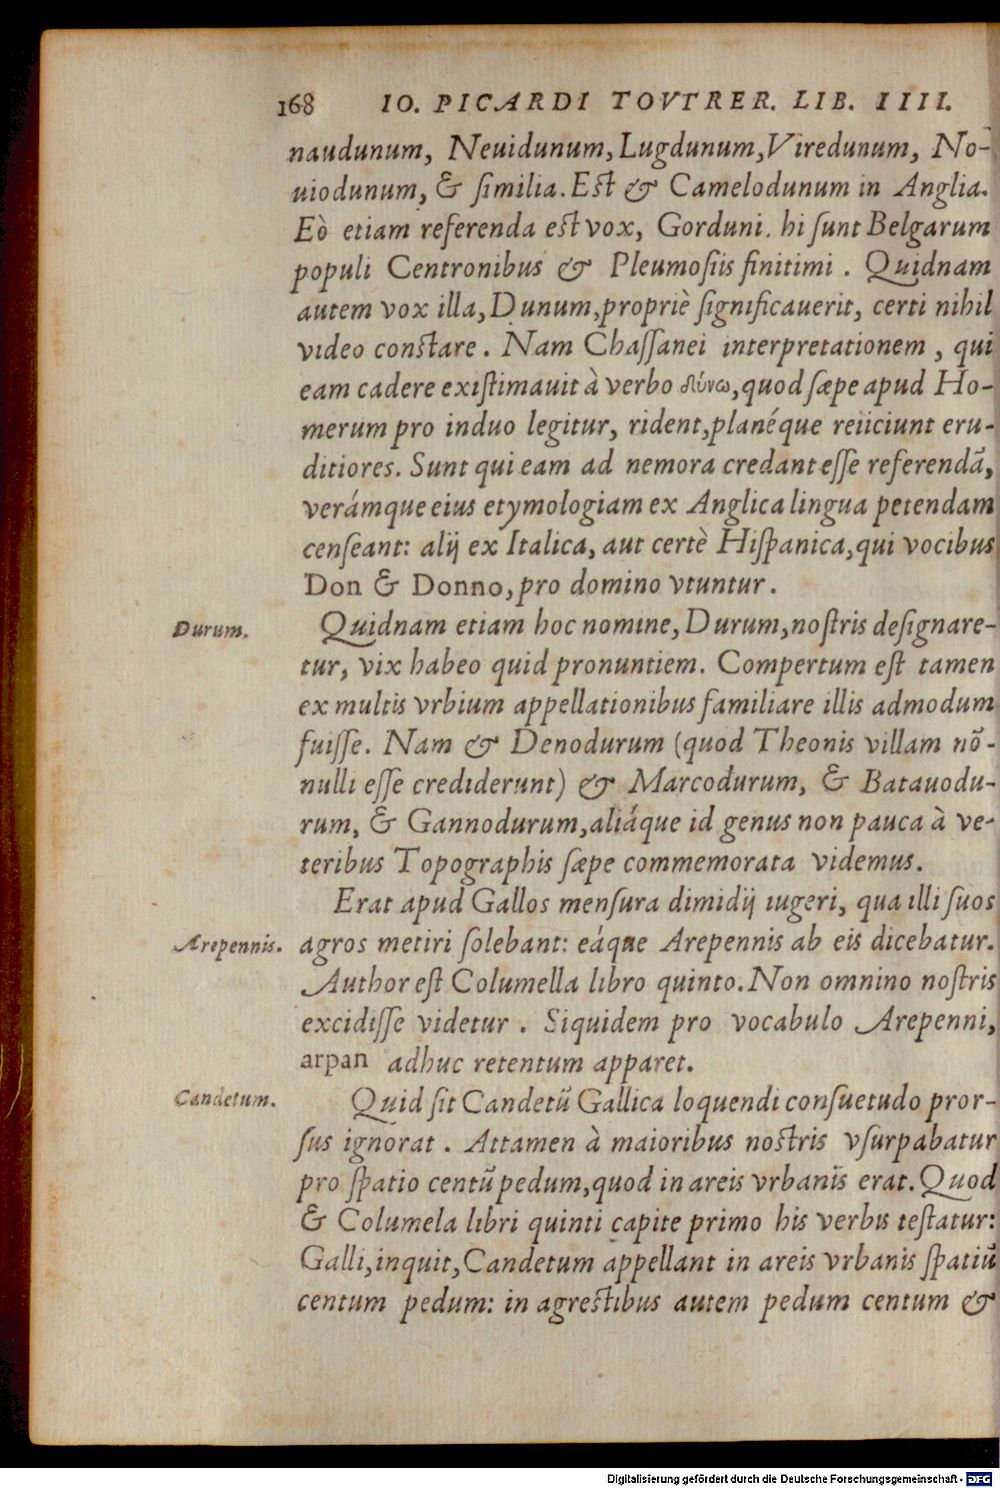 168 IO. PICARDI TOVTRER. LIB. IIII.
naudunum, Neuidunum, Lugdunum, Viredunum, No-
uiodunum, & ſimilia. Eſt & Camelodunum in Anglia.
Eò etiam referenda eſt vox, Gorduni. hi ſunt Belgarum
populi Centronibus & Pleumoſiis finitimi. Quidnam
autem vox illa, Dunum, propriè ſignificauerit, certi nihil
video conſtare. Nam Chaſſanei interpretationem, qui
eam cadere exiſtimauit à verbo δύνω, quod ſæpe apud Ho-
merum pro induo legitur, rident, planéque reiiciunt eru-
ditiores. Sunt qui eam ad nemora credant eſſe referendā,
verámque eius etymologiam ex Anglica lingua petendam
cenſeant: alij ex Italica, aut certè Hiſpanica, qui vocibus
Don & Donno, pro domino vtuntur.
Durum.
Quidnam etiam hoc nomine, Durum, noſtris deſignare-
tur, vix habeo quid pronuntiem. Compertum eſt tamen
ex multis vrbium appellationibus familiare illis admodum
fuiſſe. Nam & Denodurum (quod Theonis villam nō-
nulli eſſe crediderunt) & Marcodurum, & Batauodu-
rum, & Gannodurum, aliáque id genus non pauca à ve-
teribus Topographis ſæpe commemorata videmus.
Erat apud Gallos menſura dimidij iugeri, qua illi ſuos
Arepennis.
agros metiri ſolebant: eáque Arepennis ab eis dicebatur.
Author eſt Columella libro quinto. Non omnino noſtris
excidiſſe videtur. Siquidem pro vocabulo Arepenni,
arpan adhuc retentum apparet.
Candetum.
Quid ſit Candetū Gallica loquendi conſuetudo pror-
ſus ignorat. Attamen à maioribus noſtris vſurpabatur
pro ſpatio centū pedum, quod in areis vrbanis erat. Quod
& Columela libri quinti capite primo his verbis teſtatur:
Galli, inquit, Candetum appellant in areis vrbanis ſpatiū
centum pedum: in agreſtibus autem pedum centum &
Digitalisierung gefördert durch die Deutsche Forschungsgemeinschaft - DFG